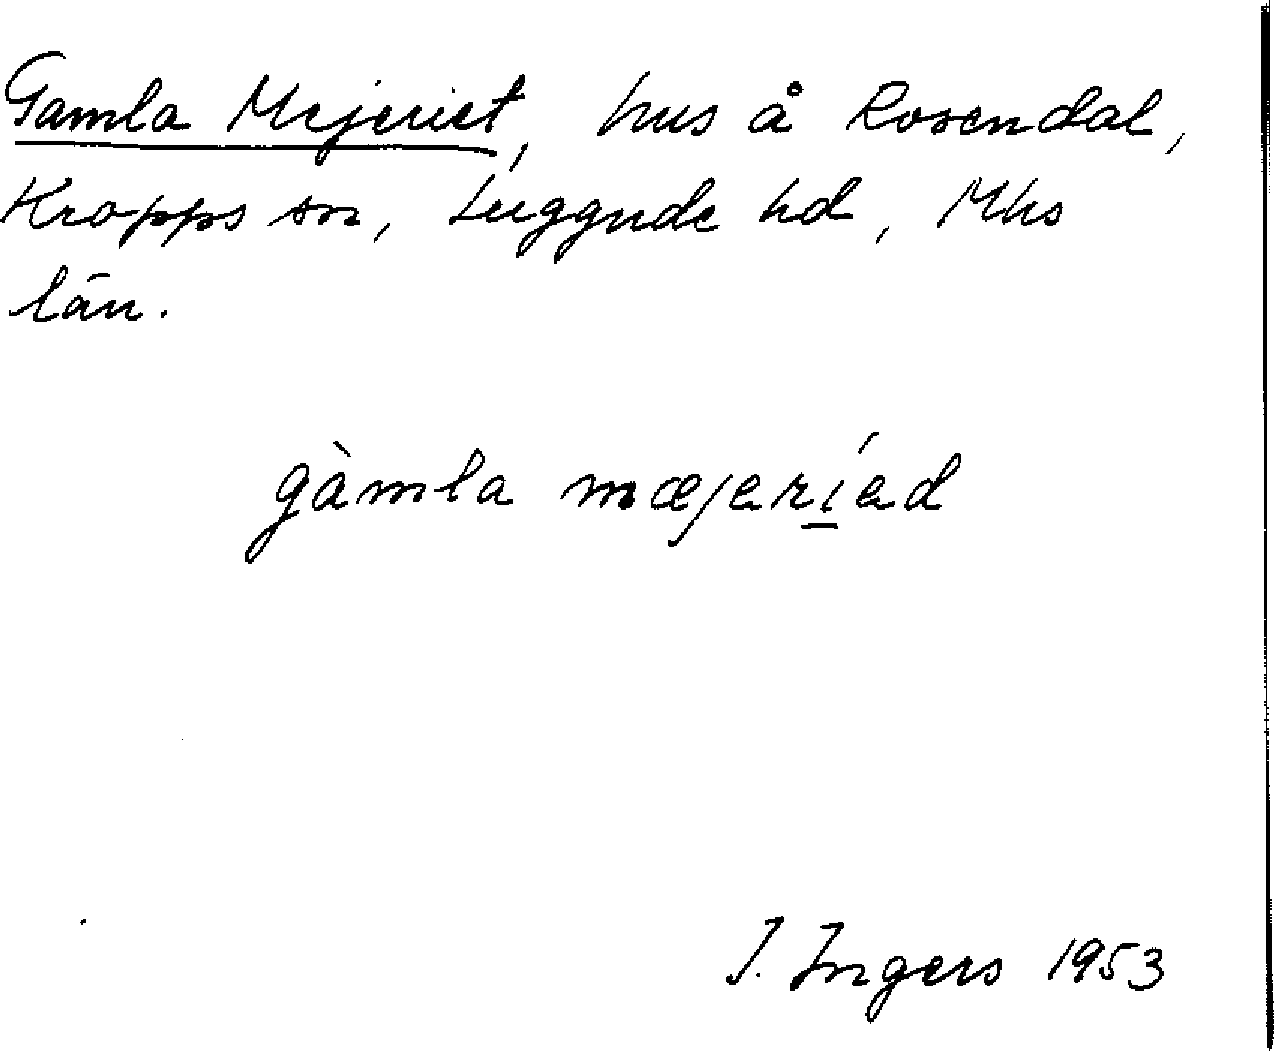 Gamla Mejeriet, hus å Rosendal,
Kropps sn, Luggude hd, Mhs
län.
gàmla mæjeríed
I. Ingers 1953